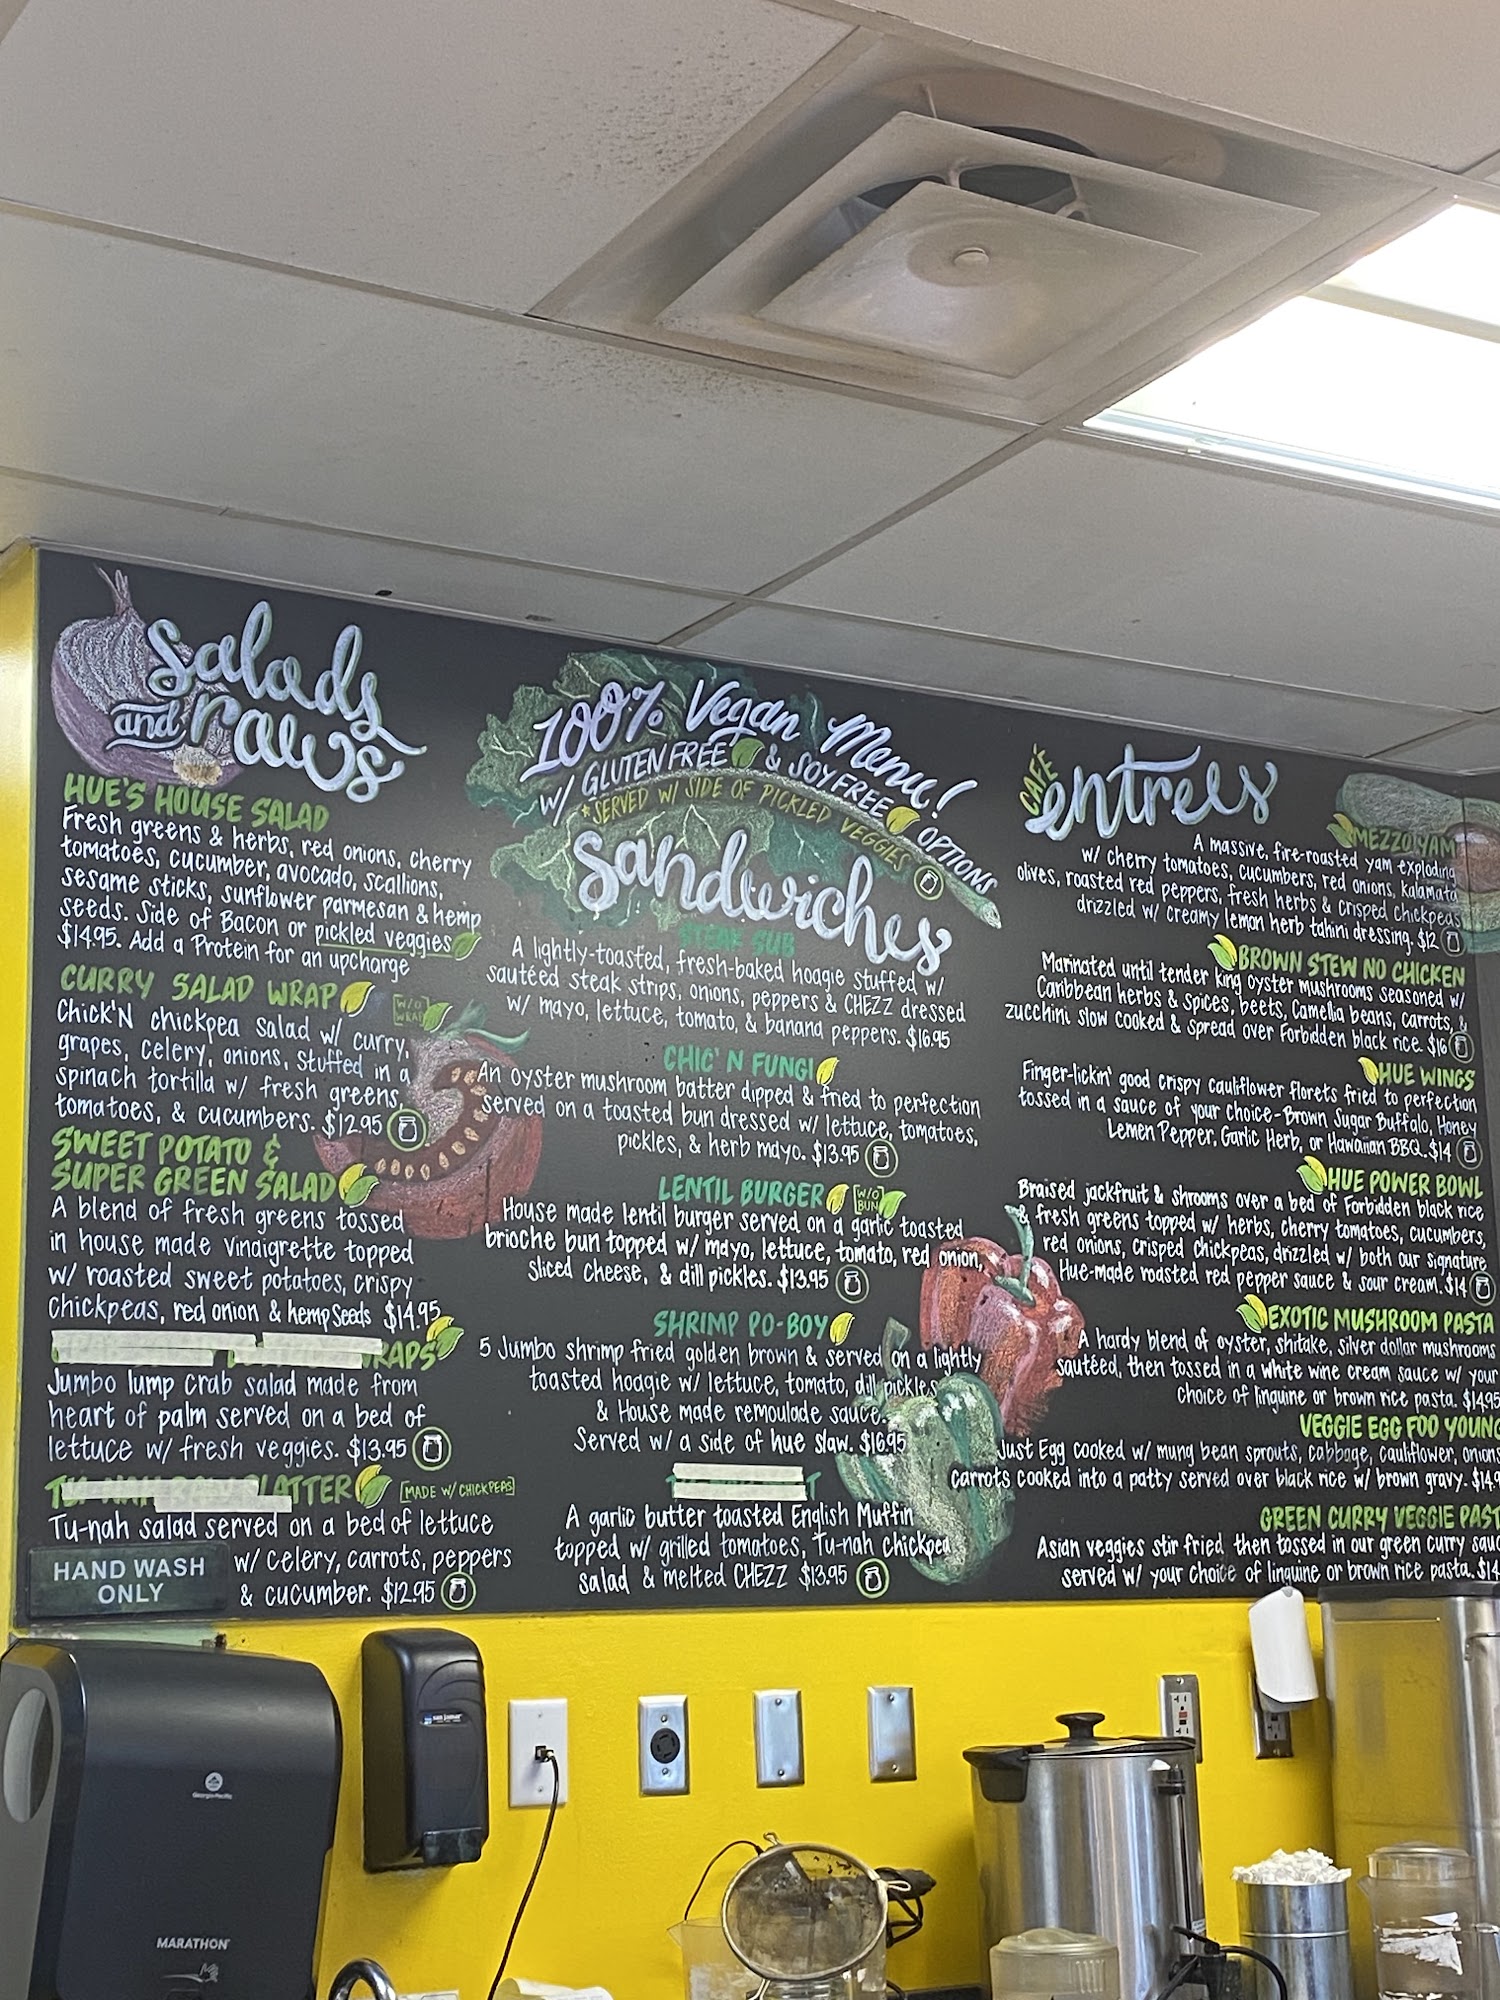 Salads
and raws
HUE'S HOUSE SALAD
Fresh greens & herbs, red onions, cherry
tomatoes, cucumber, avocado, scallions,
sesame sticks, sunflower parmesan & hemp
seeds. Side of Bacon or pickled veggies
$14.95. Add a Protein for an upcharge
CURRY SALAD WRAP
[W/O WRAP]
Chick'N chickpea salad w/ curry,
grapes, celery, onions, stuffed in a
spinach tortilla w/ fresh greens,
tomatoes, & cucumbers. $12.95
SWEET POTATO &
SUPER GREEN SALAD
A blend of fresh greens tossed
in house made vinaigrette topped
w/ roasted sweet potatoes, crispy
chickpeas, red onion & hemp seeds $14.95
WRAPS
Jumbo lump crab salad made from
heart of palm served on a bed of
lettuce w/ fresh veggies. $13.95
LATTER [MADE W/ CHICKPEAS]
Tu-nah salad served on a bed of lettuce
w/ celery, carrots, peppers
& cucumber. $12.95
HAND WASH
ONLY
100% Vegan Menu!
W/ GLUTEN FREE & SOY FREE OPTIONS
*SERVED W/ SIDE OF PICKLED VEGGIES
Sandwiches
STEAK SUB
A lightly-toasted, fresh-baked hoagie stuffed w/
sautéed steak strips, onions, peppers & CHEZZ dressed
w/ mayo, lettuce, tomato, & banana peppers. $16.95
CHIC'N FUNGI
An oyster mushroom batter dipped & fried to perfection
served on a toasted bun dressed w/ lettuce, tomatoes,
pickles, & herb mayo. $13.95
LENTIL BURGER [W/O BUN]
House made lentil burger served on a garlic toasted
brioche bun topped w/ mayo, lettuce, tomato, red onion,
sliced cheese, & dill pickles. $13.95
SHRIMP PO-BOY
5 Jumbo shrimp fried golden brown & served on a lightly
toasted hoagie w/ lettuce, tomato, dill pickles
& House made remoulade sauce.
Served w/ a side of hue slaw. $16.95
T
A garlic butter toasted English Muffin
topped w/ grilled tomatoes, Tu-nah chickpea
salad & melted CHEZZ $13.95
CAFÉ
entrées
MEZZO YAM
A massive, fire-roasted yam exploding
w/ cherry tomatoes, cucumbers, red onions, kalamata
olives, roasted red peppers, fresh herbs & crisped chickpeas
drizzled w/ creamy lemon herb tahini dressing. $12
BROWN STEW NO CHICKEN
Marinated until tender king oyster mushrooms seasoned w/
Caribbean herbs & spices, beets, Camellia beans, carrots, &
zucchini slow cooked & spread over Forbidden black rice. $16
HUE WINGS
Finger-lickin' good crispy cauliflower florets fried to perfection
tossed in a sauce of your choice-Brown Sugar Buffalo, Honey
Lemen Pepper, Garlic Herb, or Hawaiian BBQ. $14
HUE POWER BOWL
Braised jackfruit & shrooms over a bed of Forbidden black rice
& fresh greens topped w/ herbs, cherry tomatoes, cucumbers,
red onions, crisped chickpeas, drizzled w/ both our signature
Hue-made roasted red pepper sauce & sour cream. $14
EXOTIC MUSHROOM PASTA
A hardy blend of oyster, shitake, silver dollar mushrooms
sautéed, then tossed in a white wine cream sauce w/ your
choice of linguine or brown rice pasta. $14.95
VEGGIE EGG FOO YOUNG
Just Egg cooked w/ mung bean sprouts, cabbage, cauliflower, onions
carrots cooked into a patty served over black rice w/ brown gravy. $14.9
GREEN CURRY VEGGIE PAST
Asian veggies stir fried then tossed in our green curry sauc
served w/ your choice of linguine or brown rice pasta. $14
Georgia-Pacific
MARATHON